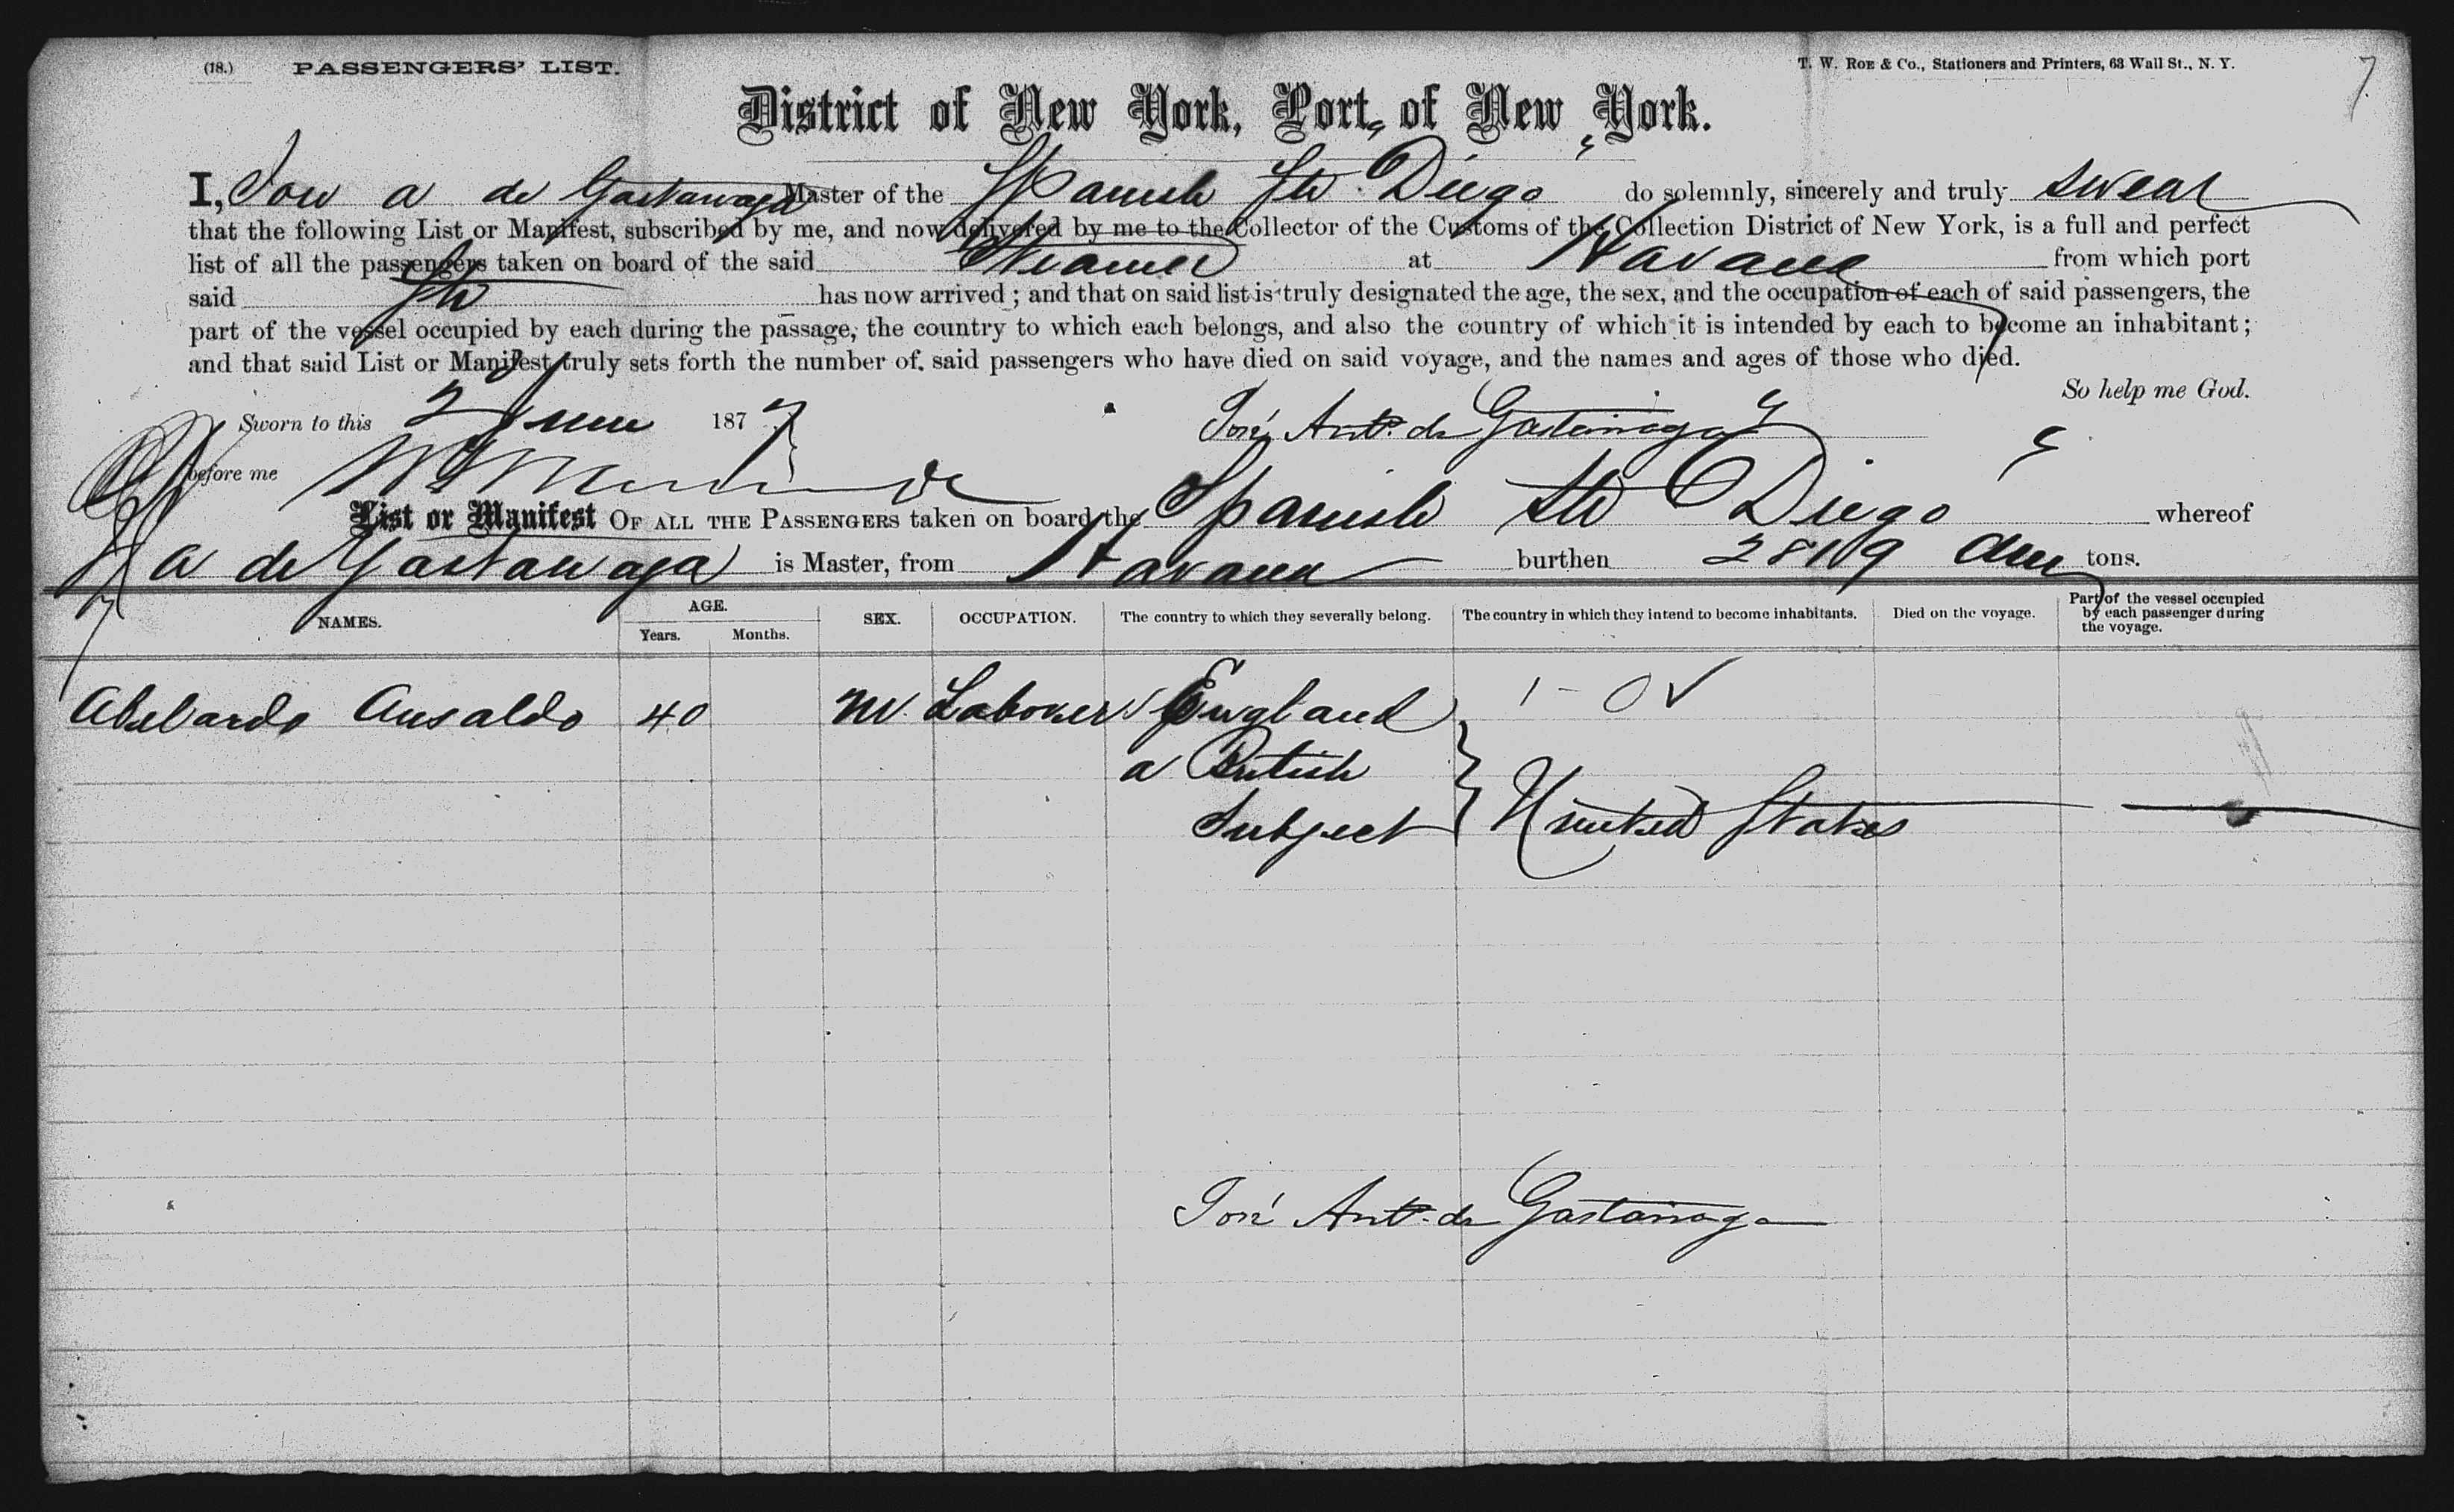 (18.) PASSENGERS' LIST.
T. W. ROE & Co., Stationers and Printers, 63 Wall St., N. Y.
7
District of New York, Port of New York.
I, Jose a de Gastanaga Master of the Spanish Str Diego do solemnly, sincerely and truly swear
that the following List or Manifest, subscribed by me, and now delivered by me to the Collector of the Customs of the Collection District of New York, is a full and perfect
list of all the passengers taken on board of the said Steamer at Havana from which port
said Str has now arrived; and that on said list is truly designated the age, the sex, and the occupation of each of said passengers, the
part of the vessel occupied by each during the passage, the country to which each belongs, and also the country of which it is intended by each to become an inhabitant;
and that said List or Manifest truly sets forth the number of said passengers who have died on said voyage, and the names and ages of those who died.
So help me God.
Sworn to this 2 June 1877
José Anto. de Gastañaga
before me
List or Manifest OF ALL THE PASSENGERS taken on board the Spanish Str Diego whereof
J a de Gastanaga is Master, from Havana burthen 2819 tons.
NAMES. AGE. Years. Months. SEX. OCCUPATION. The country to which they severally belong. The country in which they intend to become inhabitants. Died on the voyage. Part of the vessel occupied by each passenger during the voyage.
Abelardo Ansaldo 40 M. Laborer England 1 - 0 ✓
a British
Subject United States
José Anto. de Gastañaga